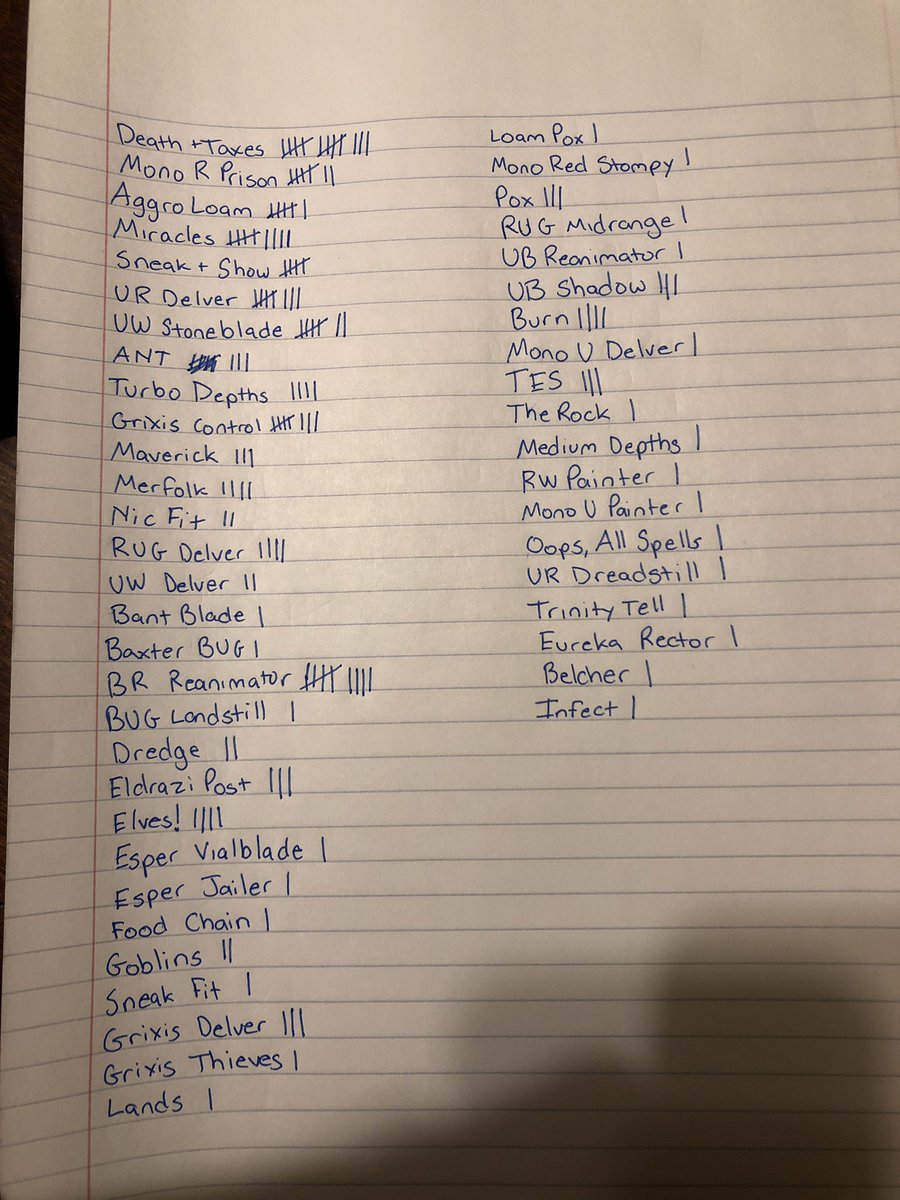 Death + Taxes 𝍸 𝍸 |||
Mono R Prison 𝍸 ||
Aggro Loam 𝍸 |
Miracles 𝍸 ||||
Sneak + Show 𝍸
UR Delver 𝍸 |||
UW Stoneblade 𝍸 ||
ANT |||
Turbo Depths ||||
Grixis Control 𝍸 |||
Maverick |||
Merfolk ||||
Nic Fit ||
RUG Delver ||||
UW Delver ||
Bant Blade |
Baxter BUG |
BR Reanimator 𝍸 ||||
BUG Landstill |
Dredge ||
Eldrazi Post |||
Elves! ||||
Esper Vialblade |
Esper Jailer |
Food Chain |
Goblins ||
Sneak Fit |
Grixis Delver |||
Grixis Thieves |
Lands |
Loam Pox |
Mono Red Stompy |
Pox |||
RUG Midrange |
UB Reanimator |
UB Shadow |||
Burn ||||
Mono U Delver |
TES |||
The Rock |
Medium Depths |
RW Painter |
Mono U Painter |
Oops, All Spells |
UR Dreadstill |
Trinity Tell |
Eureka Rector |
Belcher |
Infect |